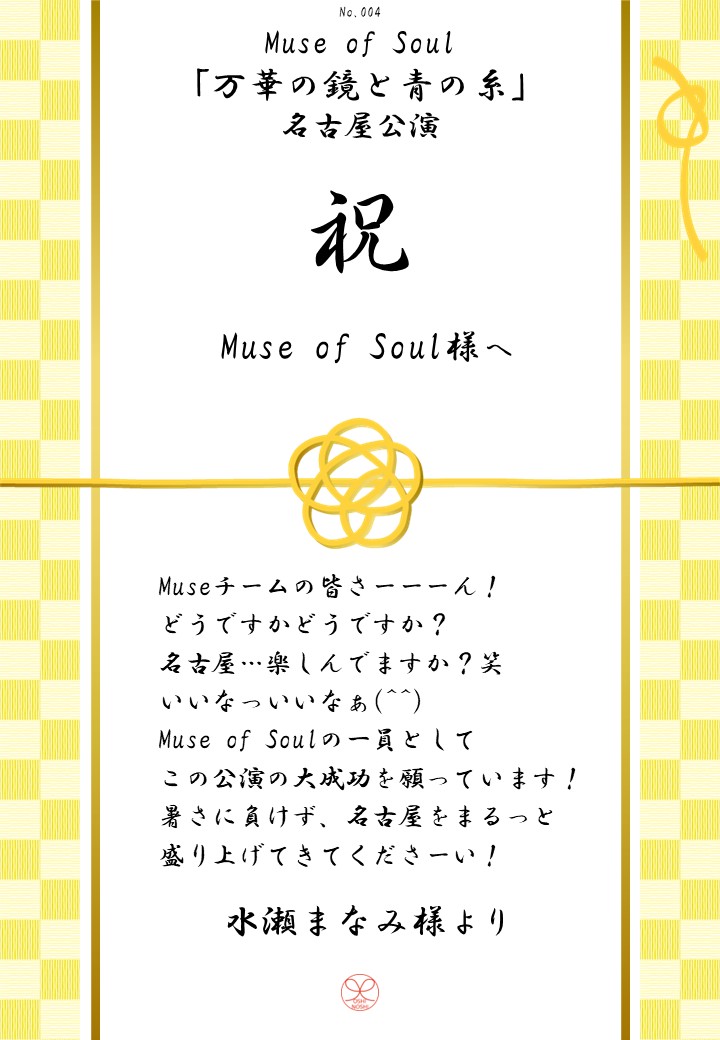 No.004
Muse of Soul
「万華の鏡と青の糸」
名古屋公演
祝
Muse of Soul様へ
Museチームの皆さーーーん！
どうですかどうですか？
名古屋…楽しんでますか？笑
いいなっいいなぁ(^^)
Muse of Soulの一員として
この公演の大成功を願っています！
暑さに負けず、名古屋をまるっと
盛り上げてきてくださーい！
水瀬まなみ様より
OSHI
NOSHI